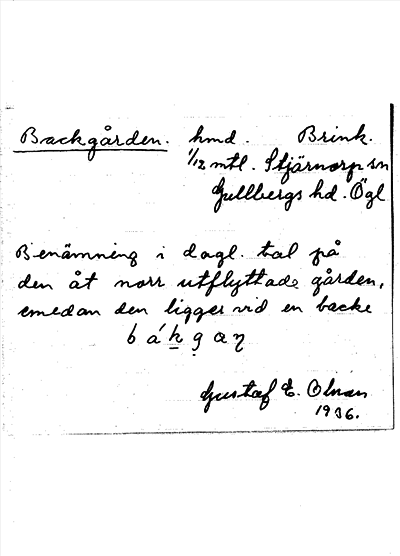 Backgården. hmd. Brink.
1/12 mtl. Stjärnorp sn
Gullbergs hd. Ögl
Benämning i dagl. tal på
den åt norr utflyttade gården,
emedan den ligger vid en backe
Gustaf E.
1936.